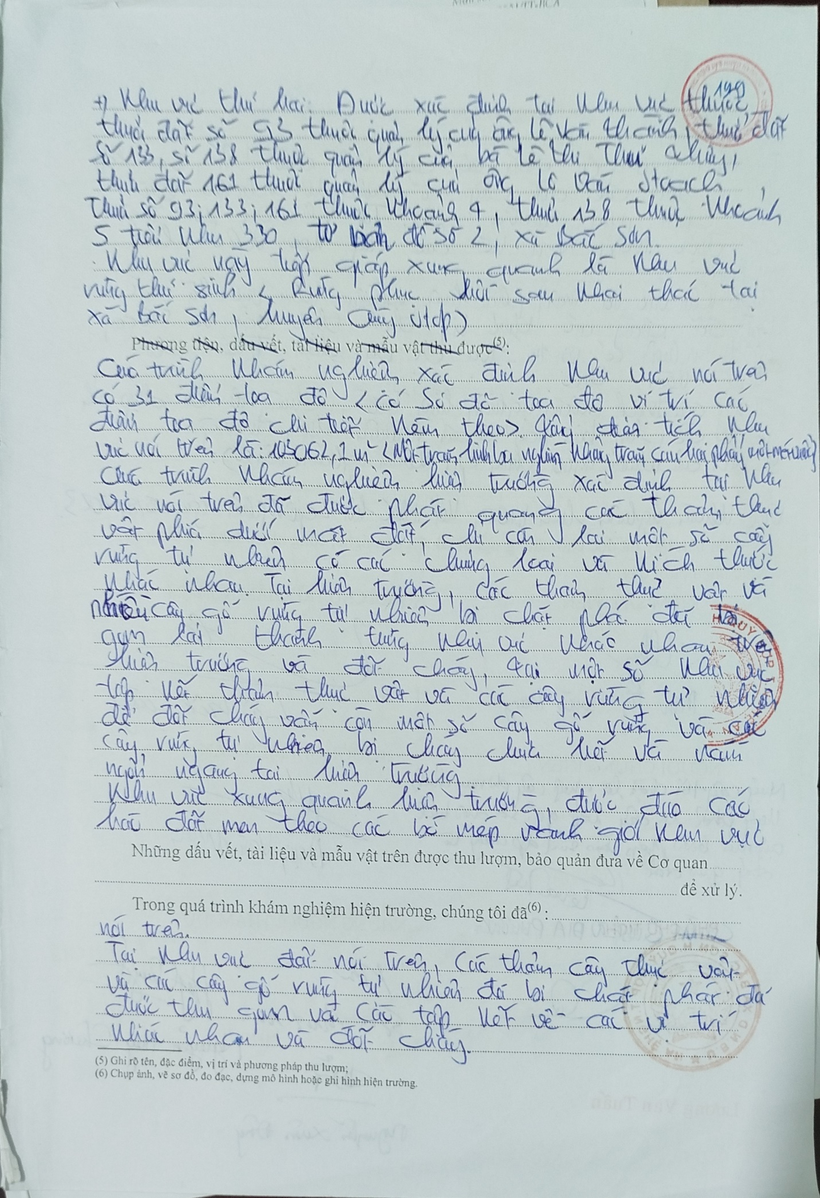 190
+) Khu vực thứ hai: Được xác định tại khu vực thuộc
thửa đất số 93 thuộc quản lý của ông Lê Văn Thành, thửa đất
số 133, số 138 thuộc quản lý của bà Lê Thị Thu
thửa đất 161 thuộc quản lý của ông Lê Văn
Thửa số 93; 133; 161 thuộc khoảnh 4, thửa 138 thuộc khoảnh
5 tiểu khu 330, tờ bản đồ số 2, xã Bắc Sơn.
Khu vực này tiếp giáp xung quanh là khu vực
rừng thứ sinh < Rừng phục hồi sau khai thác tại
xã Bắc Sơn, huyện
Phương tiện, dấu vết, tài liệu và mẫu vật thu được(5):
Quá trình khám nghiệm xác định khu vực nói trên
có 31 điểm tọa độ < có sơ đồ tọa độ vị trí các
điểm tọa độ chi tiết kèm theo>. Tổng diện tích khu
vực nói trên là: 103062,1 m² <Một trăm linh ba nghìn không trăm sáu hai phẩy một mét vuông>
Quá trình khám nghiệm hiện trường xác định tại khu
vực nói trên đã được phát quang các thảm thực
vật phía dưới mặt đất, chỉ còn lại một số cây
rừng tự nhiên có các chủng loại và kích thước
khác nhau. Tại hiện trường, các thảm thực vật và
nhiều cây gỗ rừng tự nhiên bị chặt phá đã
gom lại thành từng khu vực khác nhau
hiện trường và đốt cháy, tại một số khu vực
tập kết thảm thực vật và các cây rừng tự nhiên
để đốt cháy vẫn còn một số cây gỗ rừng và các
cây rừng tự nhiên bị cháy chưa hết và nằm
ngổn ngang tại hiện trường
Khu vực xung quanh hiện trường, được đào các
hố đất men theo các bờ mép ranh giới khu vực
Những dấu vết, tài liệu và mẫu vật trên được thu lượm, bảo quản đưa về Cơ quan
để xử lý.
Trong quá trình khám nghiệm hiện trường, chúng tôi đã(6) :
nói trên.
Tại khu vực đất nói trên, các thảm cây thực vật
và các cây gỗ rừng tự nhiên đã bị chặt phát đã
được thu gom và các tập kết về các vị trí
khác nhau và đốt cháy.
(5) Ghi rõ tên, đặc điểm, vị trí và phương pháp thu lượm;
(6) Chụp ảnh, vẽ sơ đồ, đo đạc, dựng mô hình hoặc ghi hình hiện trường.